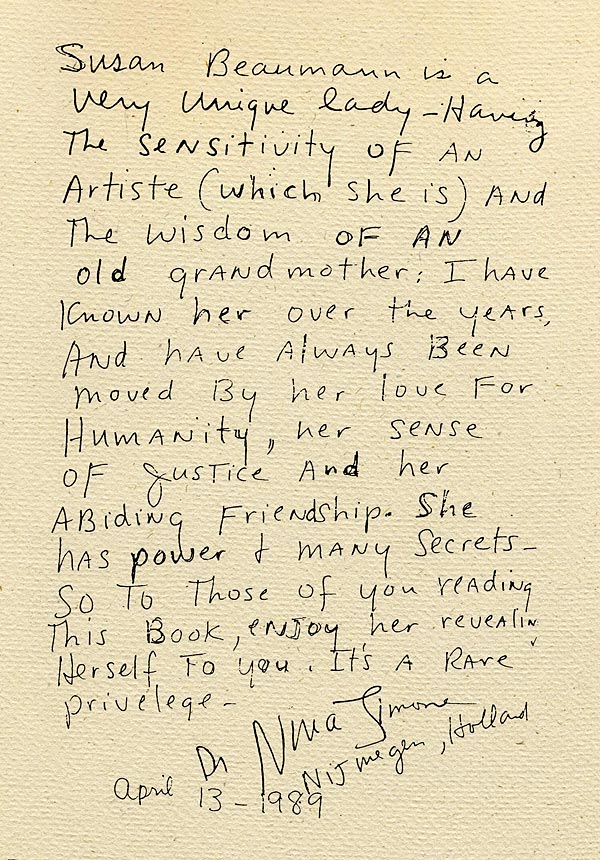 Susan Beaumann is a
very unique lady - Having
The sensitivity OF AN
Artiste (which she is) AND
The wisdom OF AN
old grANDmother; I hAve
KNOWN her over the yeArs,
ANd hAve AlwAys BeeN
moved By her love For
HumANity, her seNse
OF justice And her
ABidiNg FrieNdship. She
hAs power & mANy Secrets -
So To Those of you reAdiNg
This Book, eNJoy her reveAliN
Herself To you. It's A RAre
privelege -
Dr Nina Simone
Nijmegen, Holland
April 13 - 1989